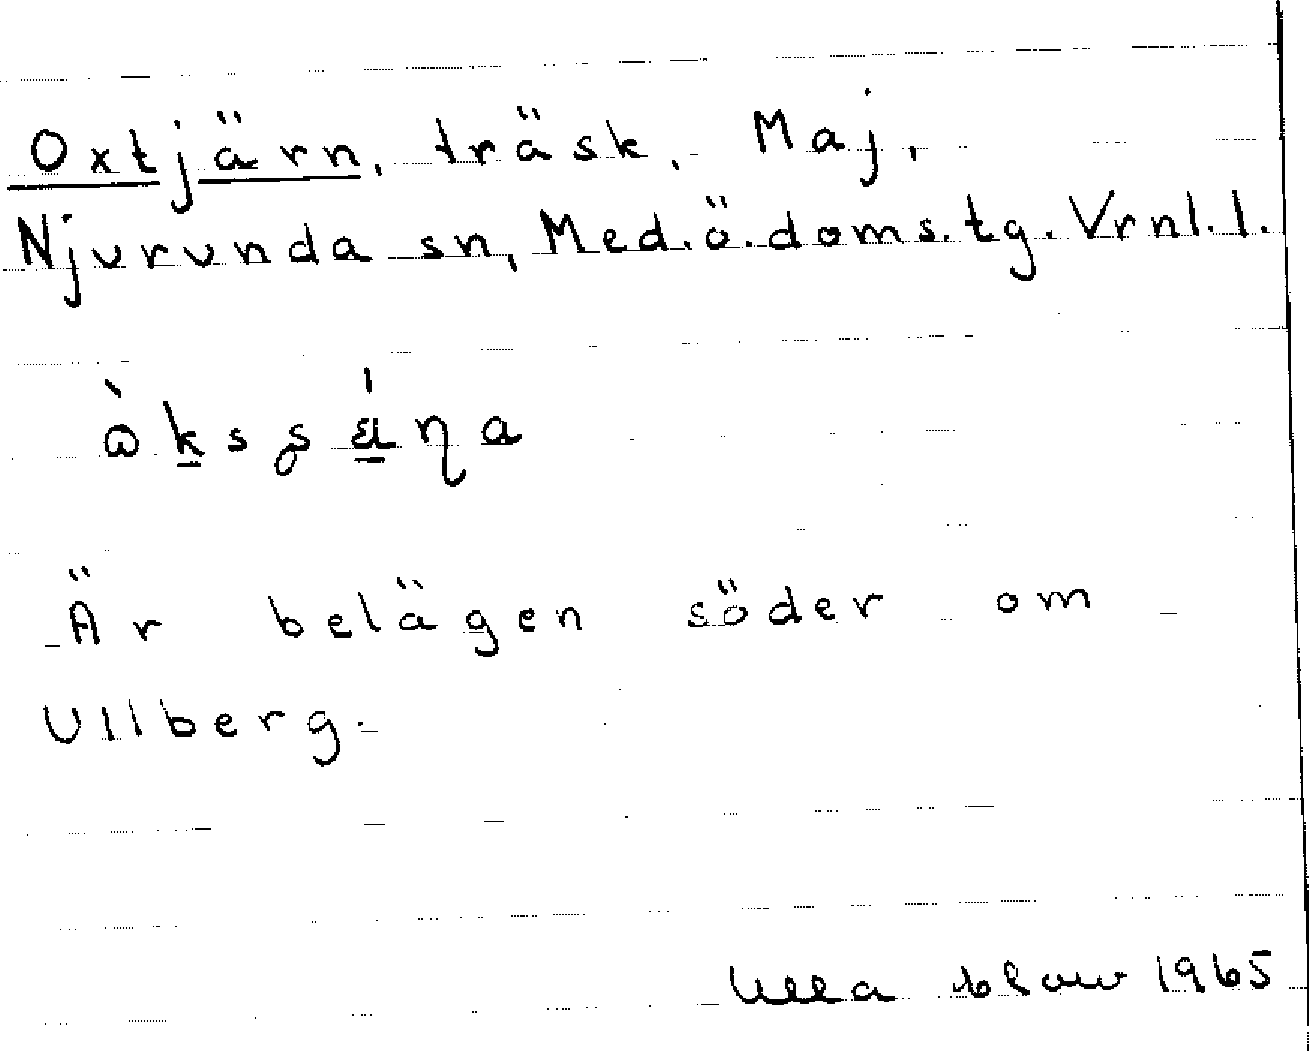 Oxtjärn, träsk, Maj,
Njurunda sn, Med.ö.doms.tg. Vrnl.l.
Är belägen söder om
Ullberg.
Ulla 1965